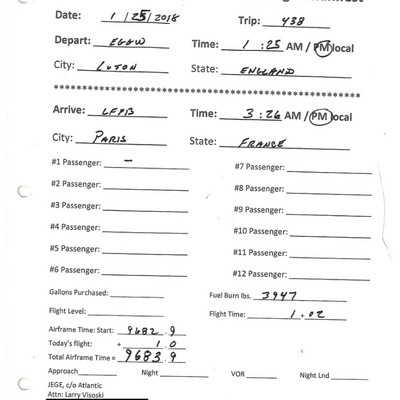 Date: 1/25/2018 Trip: 438
Depart: EGGW Time: 1:25 AM / PM local
City: LUTON State: ENGLAND
Arrive: LFPB Time: 3:26 AM / PM local
City: PARIS State: FRANCE
#1 Passenger: - #7 Passenger:
#2 Passenger: #8 Passenger:
#3 Passenger: #9 Passenger:
#4 Passenger: #10 Passenger:
#5 Passenger: #11 Passenger:
#6 Passenger: #12 Passenger:
Gallons Purchased: Fuel Burn lbs. 3947
Flight Level: Flight Time: 1+02
Airframe Time: Start: 9682.9
Today's flight: + 1.0
Total Airframe Time = 9683.9
Approach Night VOR Night Lnd
JEGE, c/o Atlantic
Attn: Larry Visoski